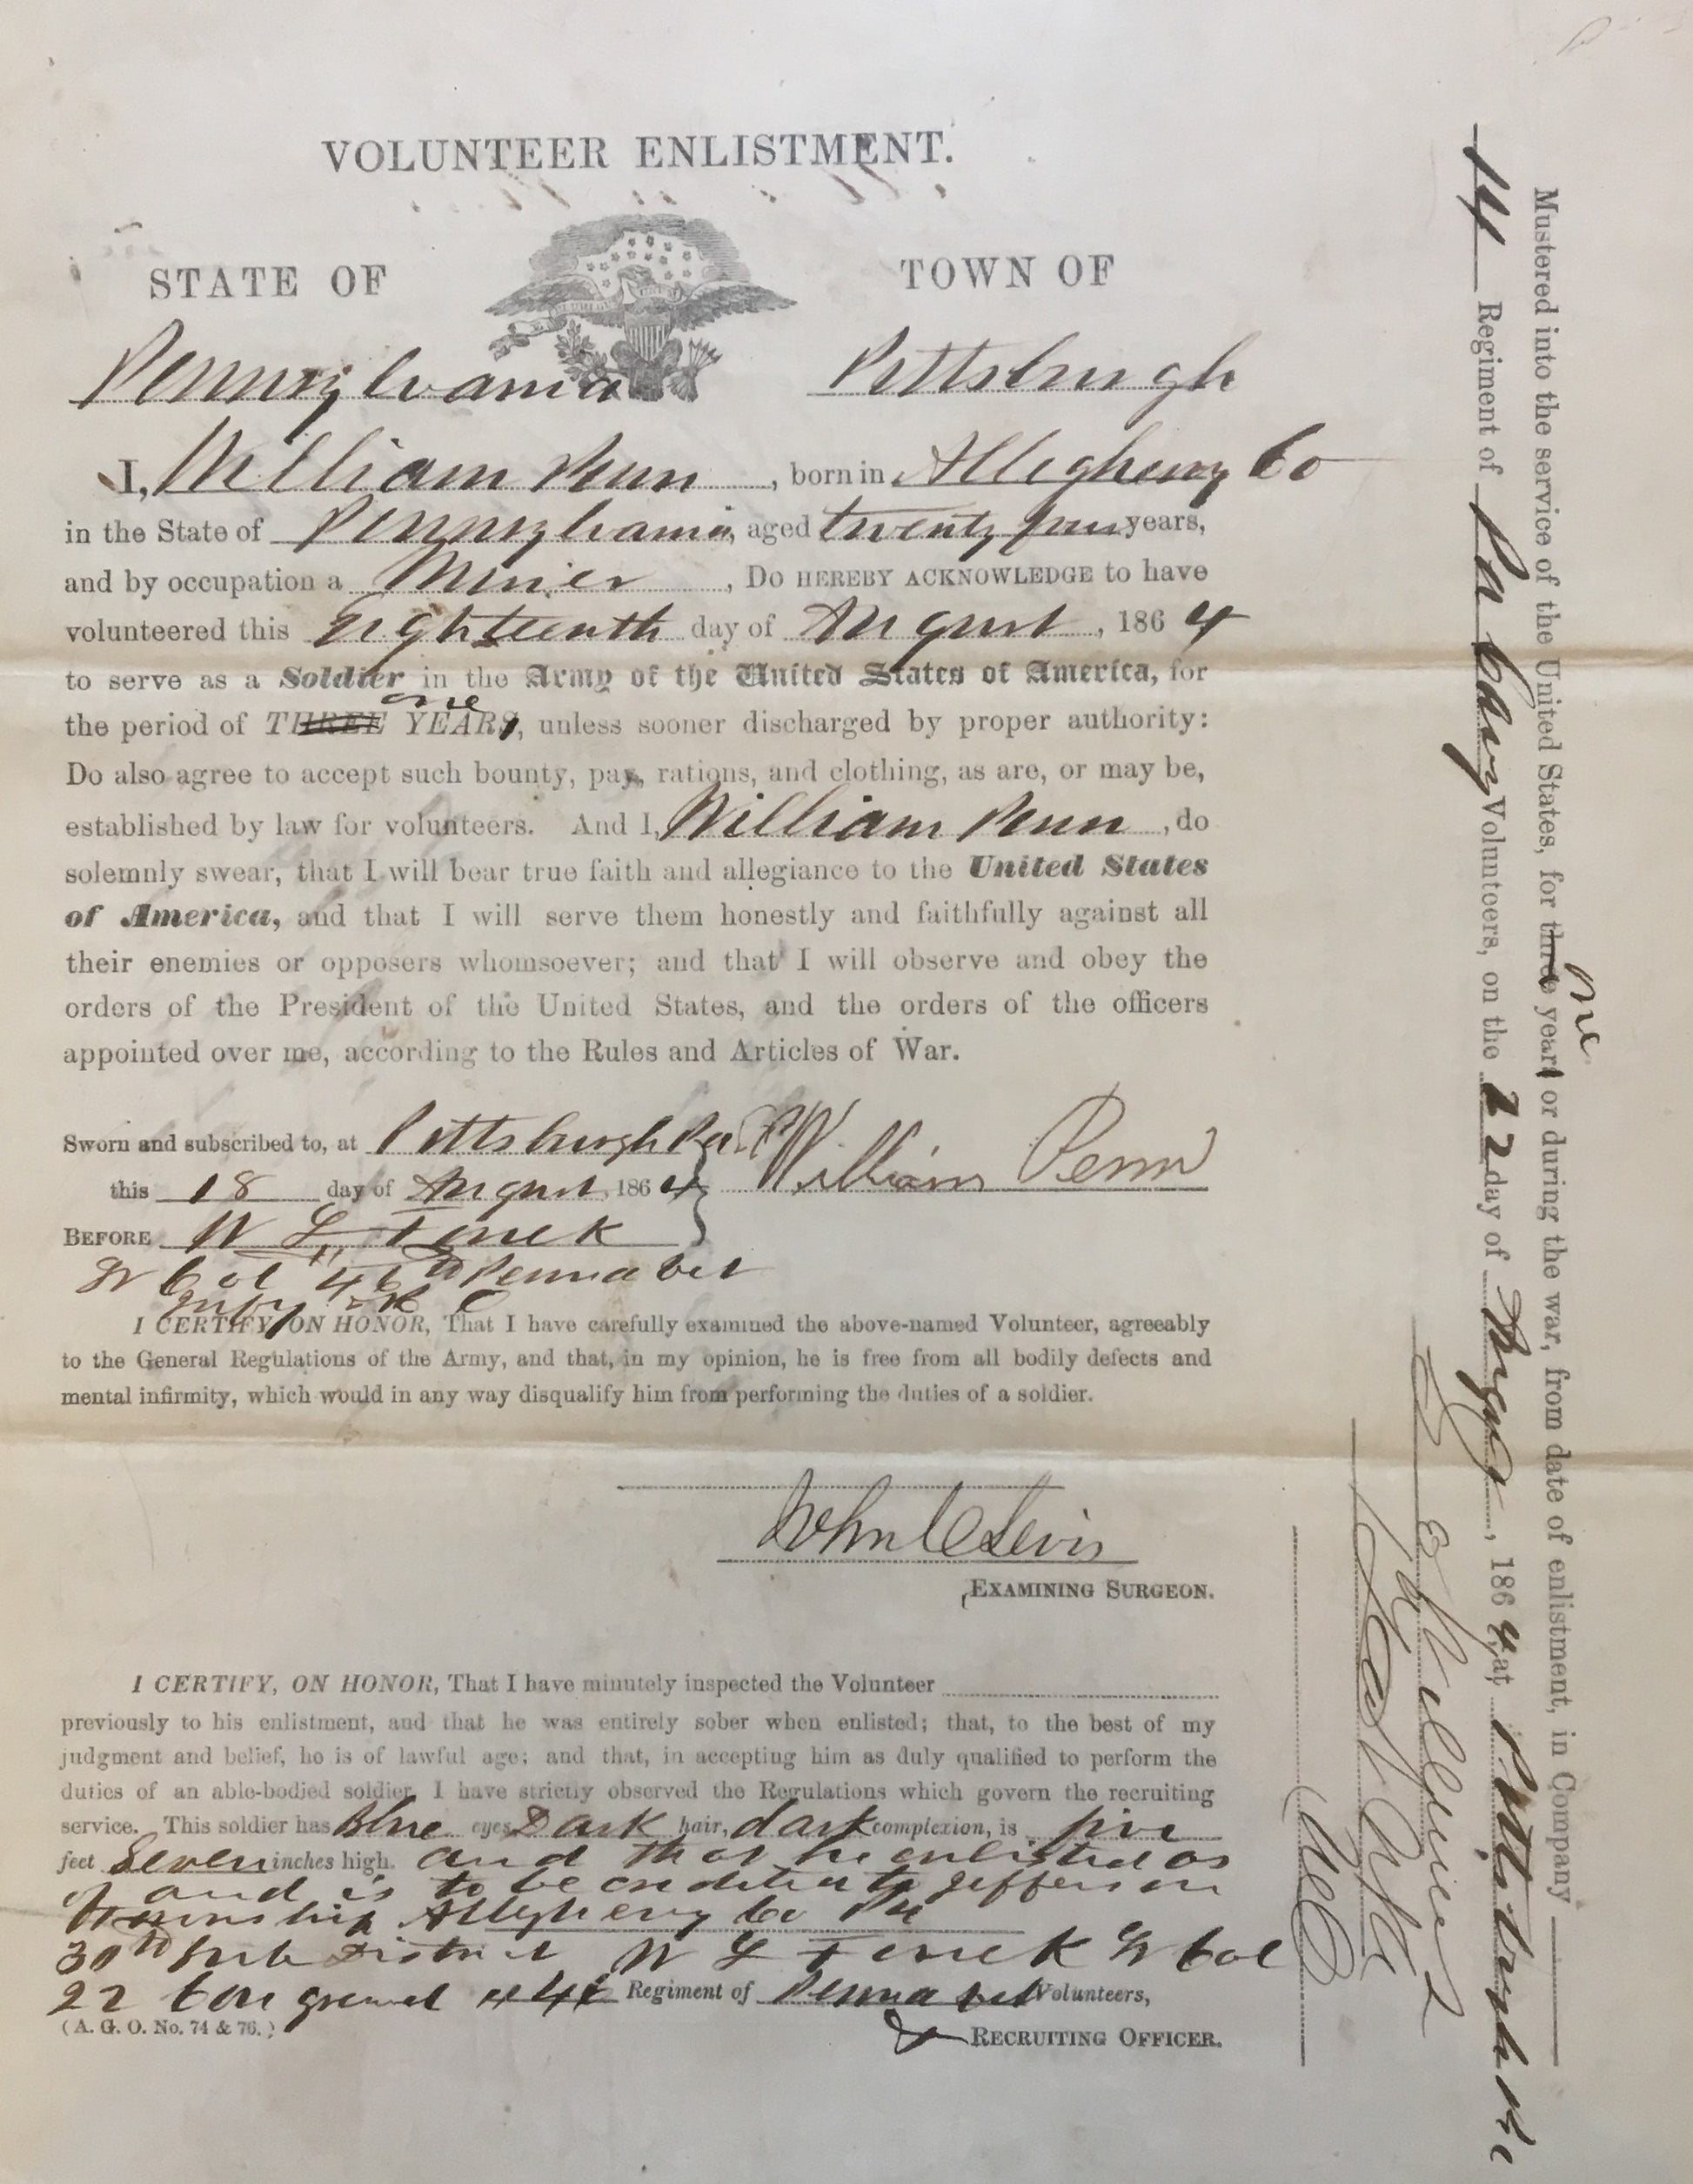 VOLUNTEER ENLISTMENT.
STATE OF TOWN OF
Pennsylvania Pittsburgh
I, William Penn, born in Allegheny Co
in the State of Pennsylvania, aged twenty four years,
and by occupation a Miner, Do HEREBY ACKNOWLEDGE to have
volunteered this Eighteenth day of August, 1864
to serve as a Soldier in the Army of the United States of America, for
one
the period of THREE YEARS, unless sooner discharged by proper authority:
Do also agree to accept such bounty, pay, rations, and clothing, as are, or may be,
established by law for volunteers. And I, William Penn, do
solemnly swear, that I will bear true faith and allegiance to the United States
of America, and that I will serve them honestly and faithfully against all
their enemies or opposers whomsoever; and that I will observe and obey the
orders of the President of the United States, and the orders of the officers
appointed over me, according to the Rules and Articles of War.
Sworn and subscribed to, at Pittsburgh Pa William Penn
this 18 day of August, 1864
BEFORE W L Foulk
Lt Col 46th Penna Vet
I CERTIFY, ON HONOR, That I have carefully examined the above-named Volunteer, agreeably
to the General Regulations of the Army, and that, in my opinion, he is free from all bodily defects and
mental infirmity, which would in any way disqualify him from performing the duties of a soldier.
John C Levis
EXAMINING SURGEON.
I CERTIFY, ON HONOR, That I have minutely inspected the Volunteer
previously to his enlistment, and that he was entirely sober when enlisted; that, to the best of my
judgment and belief, he is of lawful age; and that, in accepting him as duly qualified to perform the
duties of an able-bodied soldier, I have strictly observed the Regulations which govern the recruiting
service. This soldier has Blue eyes, Dark hair, dark complexion, is five
feet Seven inches high. and that he enlisted as
of and is to be credited to Jefferson
Township Allegheny Co Pa
30th Sub District W L Foulk Lt Col
22 Congressl 46 Regiment of Penna Vet Volunteers,
(A. G. O. No. 74 & 76.) RECRUITING OFFICER.
Mustered into the service of the United States, for three years or during the war, from date of enlistment, in Company
one
14 Regiment of Pa Cavy Volunteers, on the 22 day of Augt, 1864, at Pittsburgh Pa